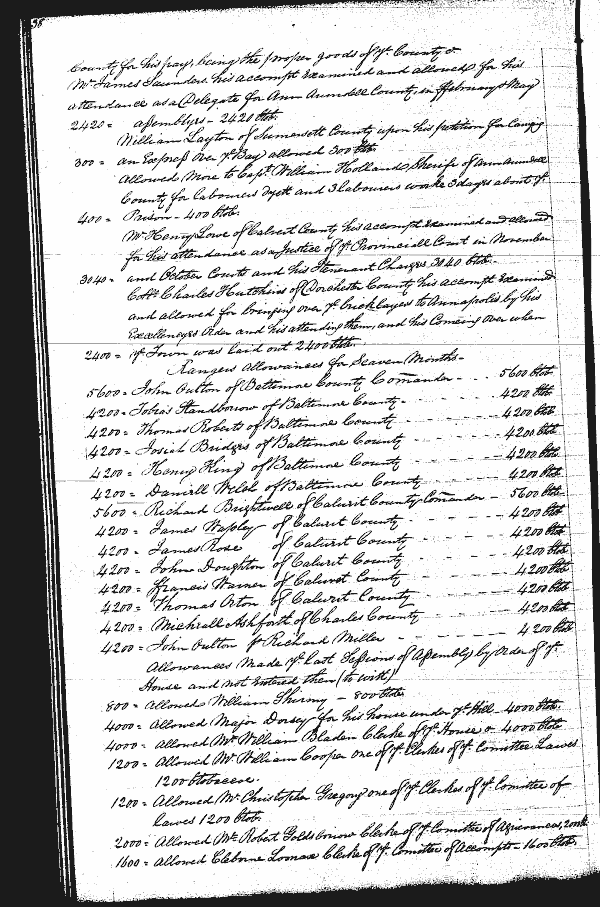 58
County for his pay, being the proper goods of ye County &
Mr James Saunders his accompt Examined and allowed for his
attendance as a Delegate for Ann Arundell County in ffebruary & May
2420 = assemblys - 2420 lbtob.
William Layton of Sumersett County upon his petition for Carrying
300 = an Express Over ye Bay allowed 300 lbtob.
Allowed More to Capt. William Holland Sheriff of Ann Arundell
County for Labourers dyett and 3 labourers worke 3 days about ye
400 = Prison - 400 lbtob.
Mr Henry Lowe of Calvert County his accompt Examined and allowed
for his attendance as a Justice of ye Provinciall Court in November
3040 = and October Courts and his Itenerant Charges 3040 lbtob.
Collo Charles Hutchins of Dorchester County his accompt Examined
and allowed for bringing over ye bricklayers to Annapolis by his
Excellencys Order and his attending them, and his Comeing Over when
2400 = ye Town was laid out 2400 lbtob.
Rangers allowances for Seaven Months -
5600 = John Oulton of Baltimore County Comander - - . 5600 lbtob.
4200 = Tobias Standborow of Baltimore County - - - 4200 lbtob.
4200 = Thomas Roberts of Baltimore County - - - 4200 lbtob.
4200 = Josiah Bridges of Baltimore County - - - 4200 lbtob.
4200 = Henry King of Baltimore County - - - 4200 lbtob.
4200 = Daniell Welsh of Baltimore County - - - 4200 lbtob.
5600 = Richard Brightwell of Calvert County Comander - 5600 lbtob.
4200 = James Wapley of Calvert County - - - 4200 lbtob.
4200 = James Rose of Calvert County - - - 4200 lbtob.
4200 = John Doughton of Calvert County - - - 4200 lbtob.
4200 = Francis Warner of Calvert County - - - 4200 lbtob.
4200 = Thomas Orton of Calvert County - - - 4200 lbtob.
4200 = Michaell Ashforth of Charles County - - - 4200 lbtob.
4200 = John Oulton & Richard Miller - - - 4200 lbtob
Allowances Made ye last Sessions of Assembly by Order of ye
House and not Entered then (to witt)
800 = Allowed William - 800 lbtob
4000 = Allowed Major Dorsey for his house under ye Hill - 4000 lbtob.
4000 = Allowed Mr William Bladen Clerke of ye House - 4000 lbtob.
1200 = Allowed Mr William Cooper one of ye Clerkes of ye Comittee Lawes
1200 lbtobacco.
1200 = Allowed Mr Christopher Gregory one of ye Clerkes of ye Comittee of
Lawes 1200 lbtob.
2000 = Allowed Mr Robert Goldsborow Clerke of ye Comittee of Agrievances, 2000 lb
1600 = Allowed Cleborne Lomax Clerke of ye Comittee of Accompts - 1600 lbtob.